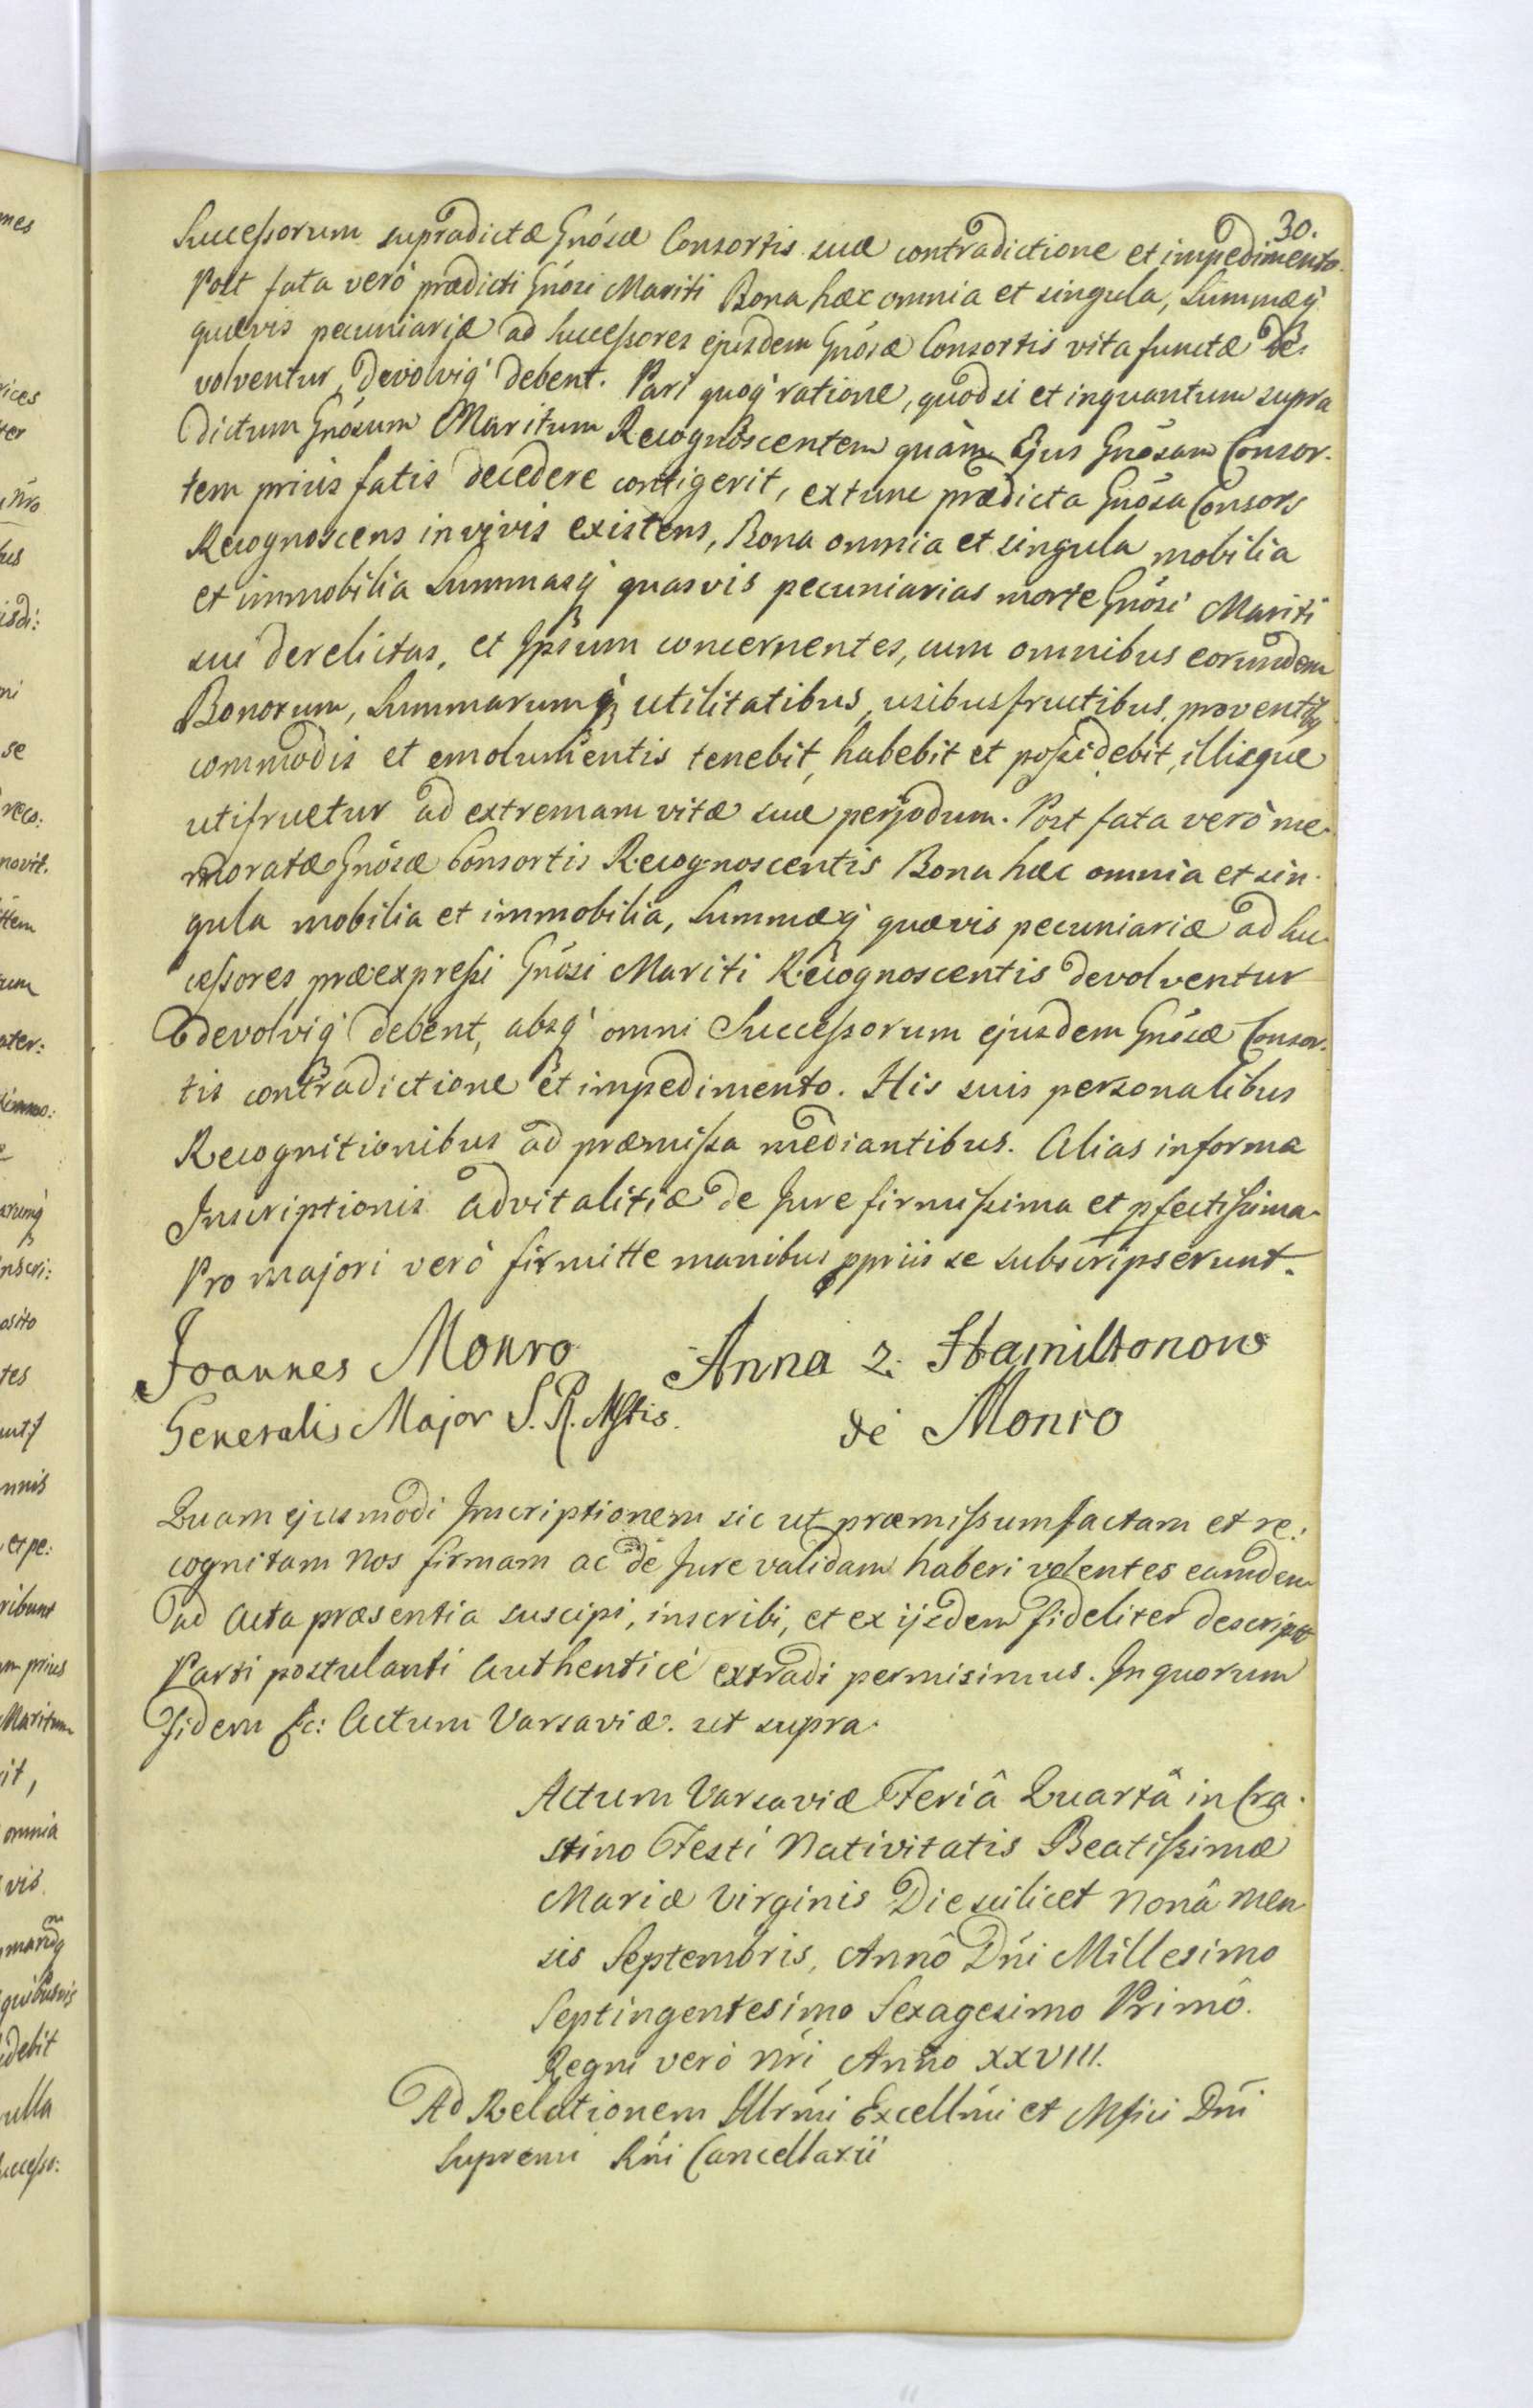 30.
Successorum supradictæ Gnósæ Consortis suæ contradictione et impedimento.
Post fata verò prædicti Gnósi Mariti Bona hæc omnia et singula, Summæq́
quævis pecuniariæ ad Successores ejusdem Gnósæ Consortis vita functæ de-
volventur, devolviq́ debent. Pari quoq́ ratione, quod si et inquantum supra
dictum Gnósum Maritum Recognoscentem quàm Ejus Gnósam Consor-
tem priùs fatis decedere contigerit, extunc prædicta Gnósa Consors
Recognoscens in vivis existens, Bona omnia et singula mobilia
et immobilia Summasq́ quasvis pecuniarias morte Gnósi Mariti
sui derelictas, et Ipsum concernentes, cum omnibus eorundem
Bonorum, Summarumq́ utilitatibus, usibusfructibus, proventibq
commodis et emolumentis tenebit, habebit et possidebit, illisque
utifruetur ad extremam vitæ suæ perjodum. Post fata verò me-
moratæ Gnósæ Consortis Recognoscentis Bona hæc omnia et sin-
gula mobilia et immobilia, Summæq́ quævis pecuniariæ ad Suc-
cessores præexpressi Gnósi Mariti Recognoscentis devolventur
devolviq́ debent, absq́ omni Successorum ejusdem Gnósæ Consor-
tis contradictione et impedimento. His suis personalibus
Recognitionibus ad præmissa mediantibus. Alias in forma
Inscriptionis advitalitiæ de Jure firmissima et pfectissima.
Pro majori verò firmitte manibus ppriis se subscripserunt.
Joannes Monro Anna z Hamiltonow
Generalis Major S. R. Mttis. de Monro
Quam ejusmodi Inscriptionem sic ut præmissum factam et re:
cognitam Nos firmam ac de Jure validam haberi volentes eamdem
ad Acta præsentia suscipi, inscribi, et ex ijsdem fideliter descriptt
Parti postulanti Authenticè extradi permisimus. In quorum
fidem &c: Actum Varsaviæ. ut supra.
Actum Varsaviæ Feriâ Quartâ in Cra-
stino Festi Nativitatis Beatissimæ
Mariæ Virginis Die scilicet Nonâ Men
sis Septembris, Annô Dńi Millesimo
Septingentesimo Sexagesimo Primô.
Regni verò Nrí Anno XXVIII.
Ad Relationem Illrmi Excellmi et Mfici Dńi
Supremi Rńi Cancellarii